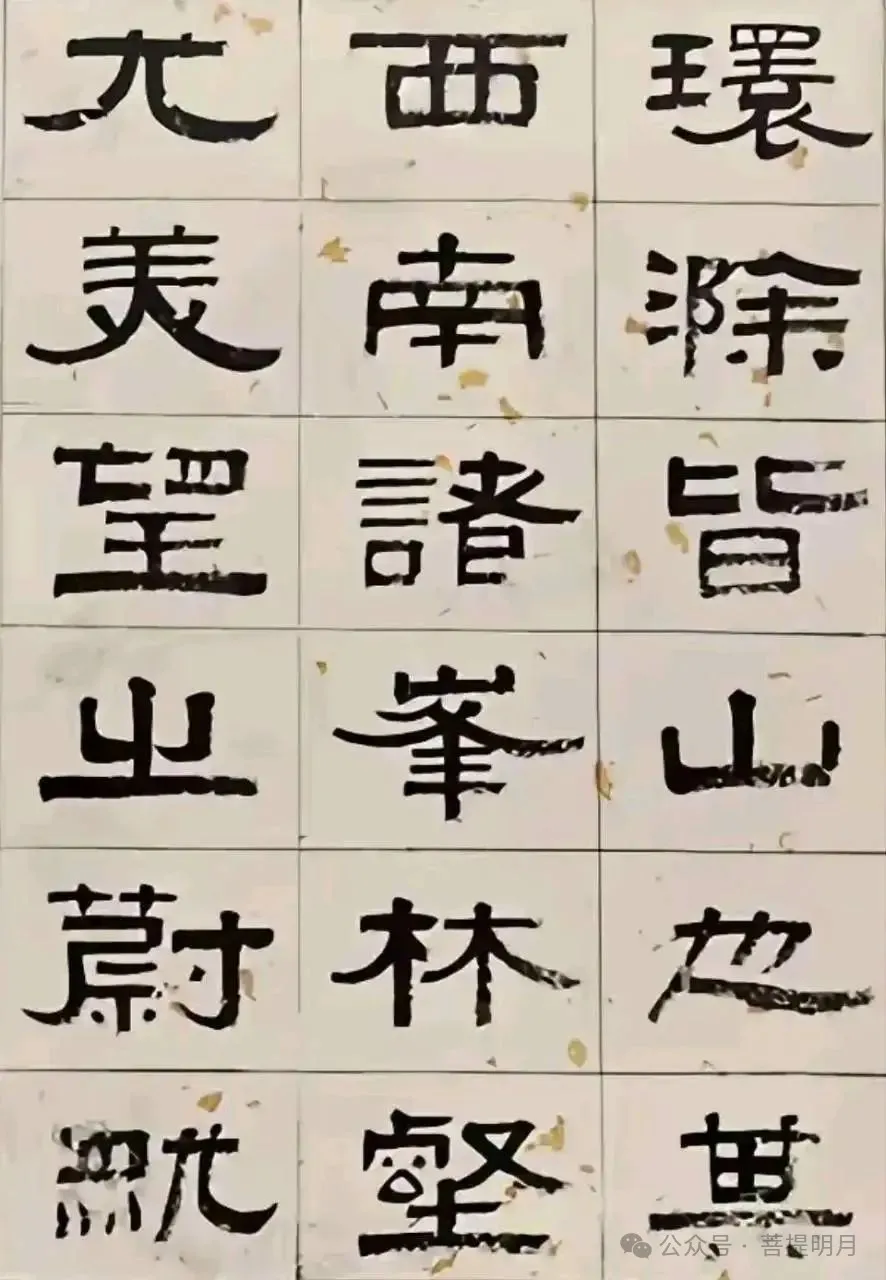 環滁皆山也其
西南諸峯林壑
尤美望之蔚然
公众号 · 菩提明月